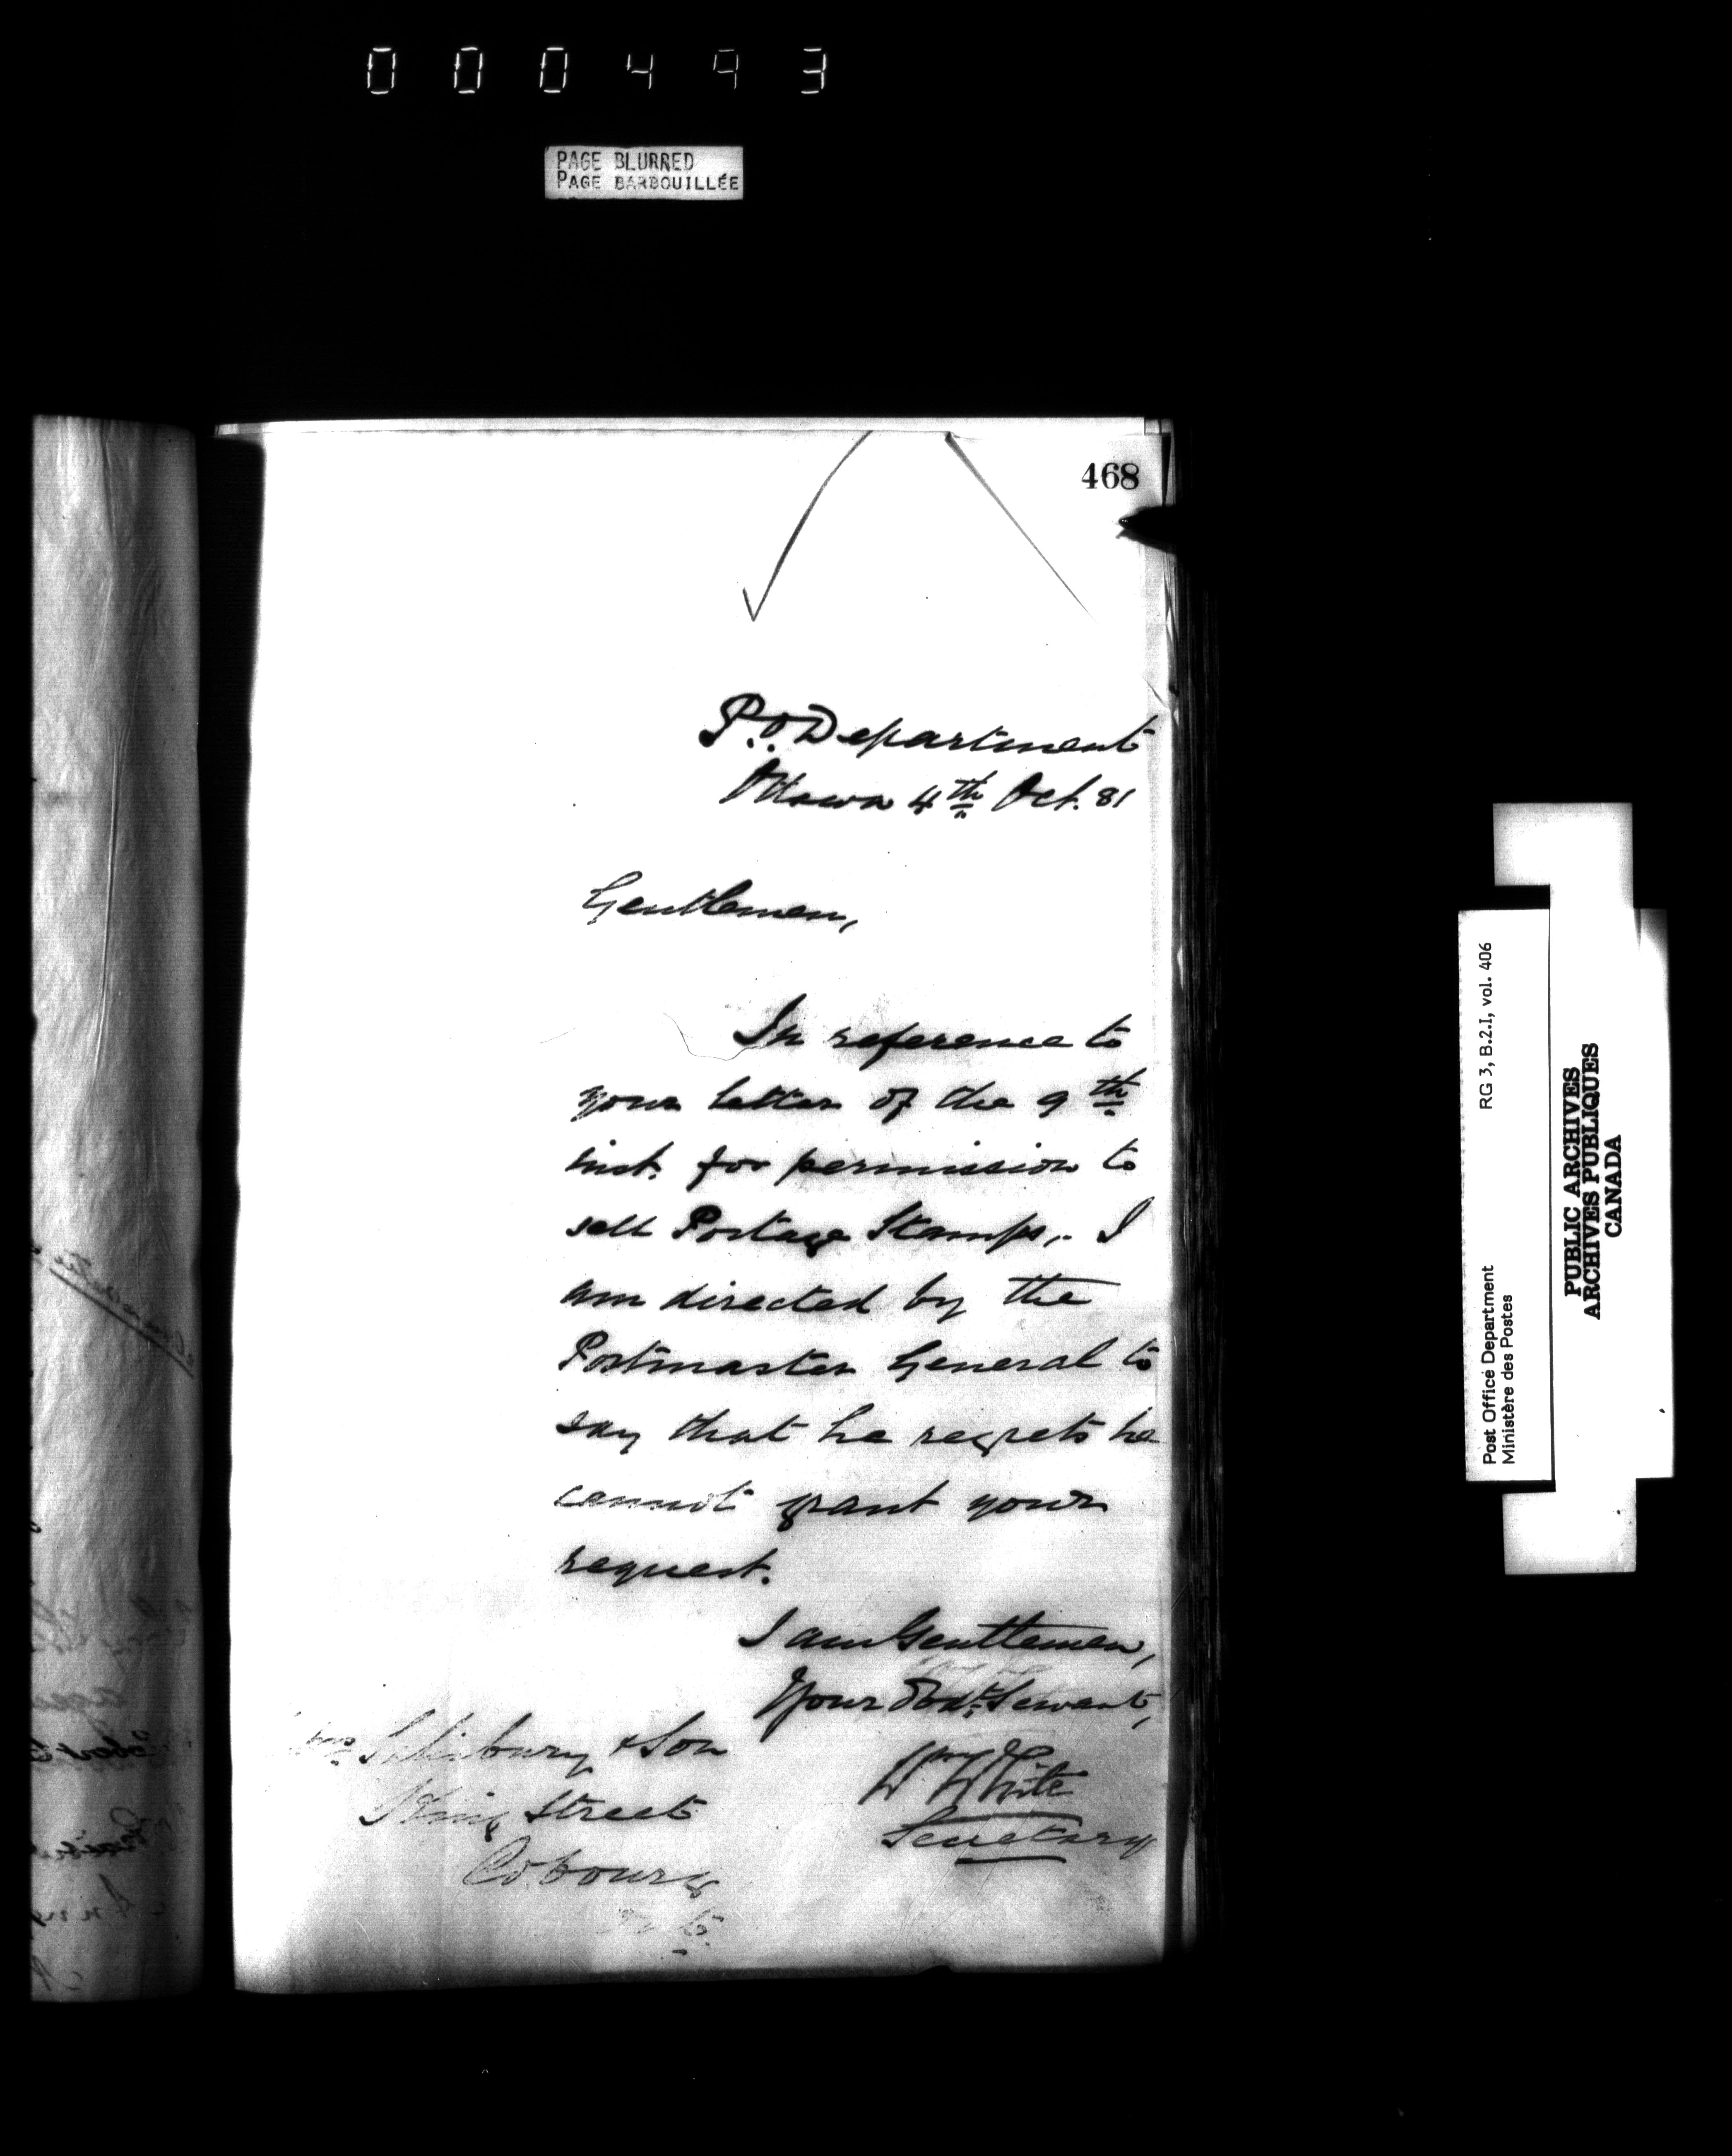 000493
PAGE BLURRED
PAGE BARBOUILLÉE
468
P.O Department
Ottawa 4th Oct. 81
Gentlemen,
In reference to
your letter of the 9th
inst. for permission to
sell Postage Stamps, I
am directed by the
Postmaster General to
say that he regrets he
cannot grant your
request.
I am Gentlemen,
Your Obdt. Servant,
Wm White
Secretary
& Son
King Street
Cobourg
RG 3, B.2.I, vol. 406
Post Office Department
Ministère des Postes
PUBLIC ARCHIVES
ARCHIVES PUBLIQUES
CANADA